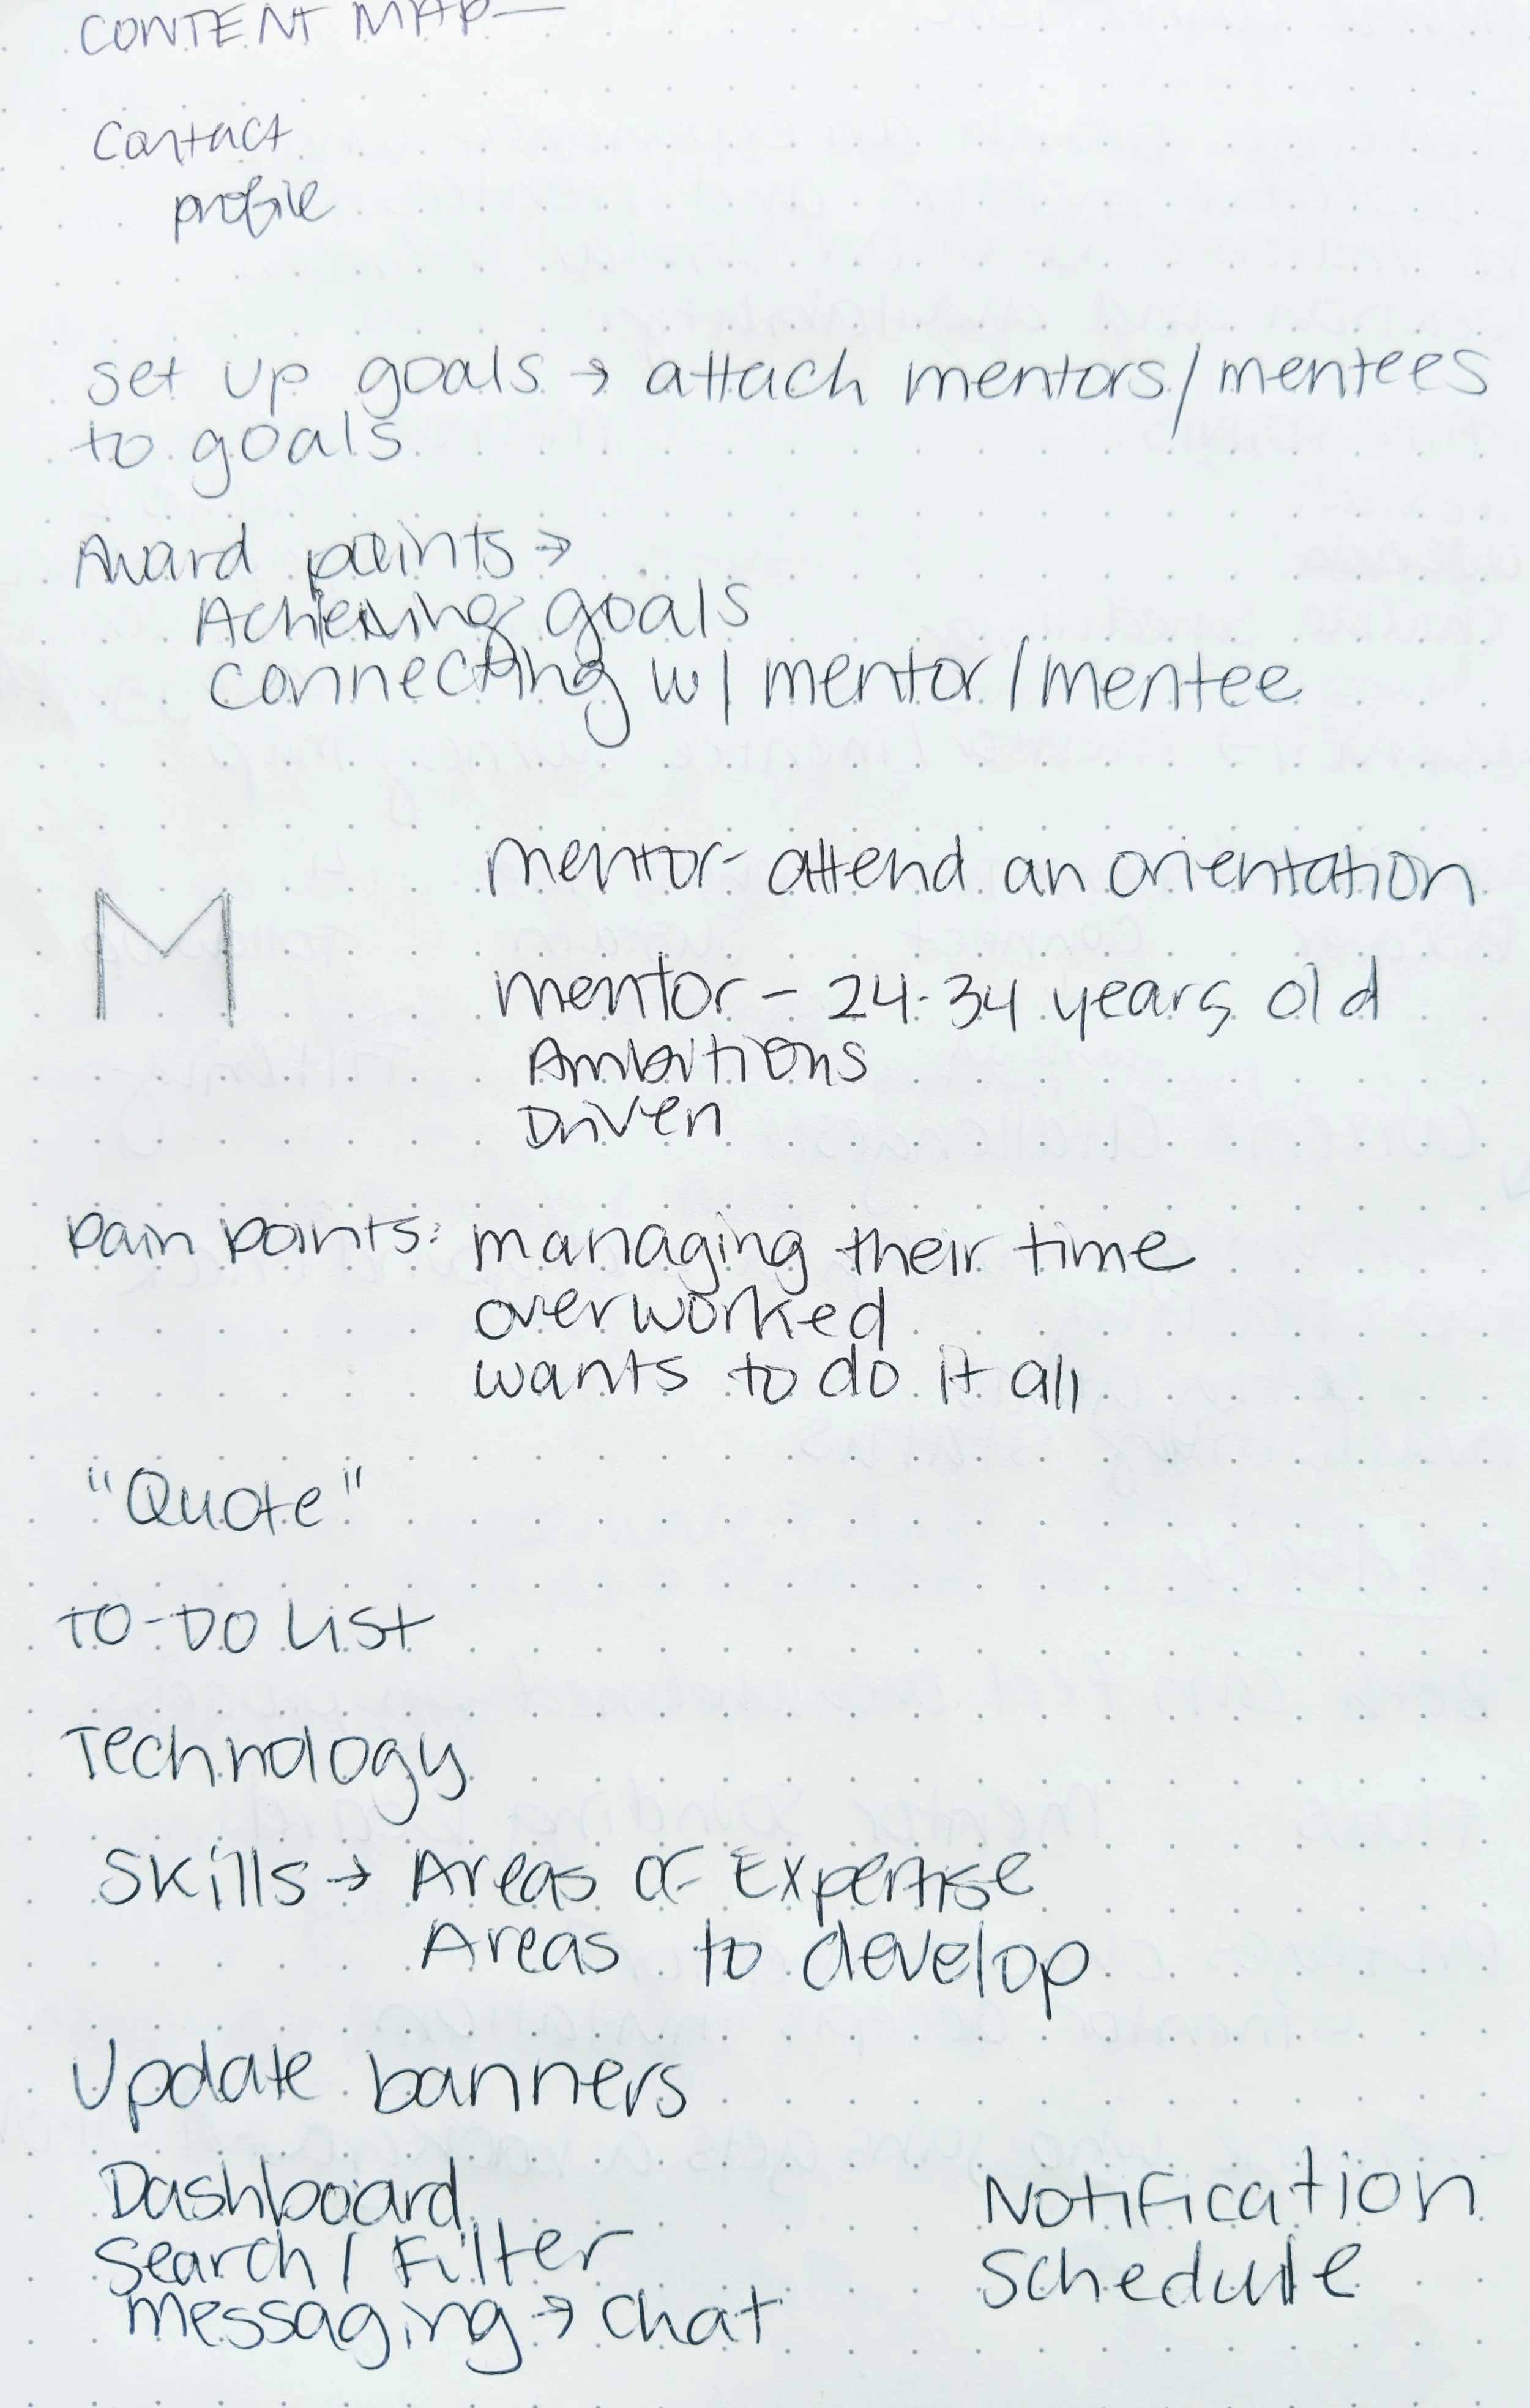 CONTENT MAP—
Contact
profile
set up goals → attach mentors/mentees
to goals
Award points →
Achieving goals
connecting w/ mentor/mentee
mentor- attend an orientation
M
mentor - 24-34 years old
Ambitions
Driven
pain points: managing their time
overworked
wants to do it all
"Quote"
TO-DO List
Technology
Skills → Areas of Expertise
Areas to develop
Update banners
Dashboard
Notification
Search / Filter
Schedule
messaging → chat